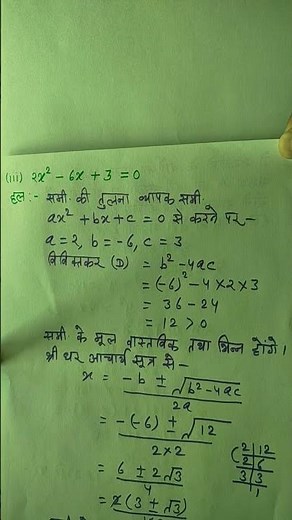 (iii) 2x² - 6x + 3 = 0
हल :- समी. की तुलना व्यापक समी.
ax² + bx + c = 0 से करने पर -
a = 2, b = -6, c = 3
विविक्तकर (D) = b² - 4ac
= (-6)² - 4 × 2 × 3
= 36 - 24
= 12 > 0
समी. के मूल वास्तविक तथा भिन्न होंगे।
श्री धर आचार्य सूत्र से -
x = -b ± √b² - 4ac
2a
= -(-6) ± √12
2 × 2
= 6 ± 2√3
4
= 2(3 ± √3)
2 | 12
2 | 6
3 | 3
1